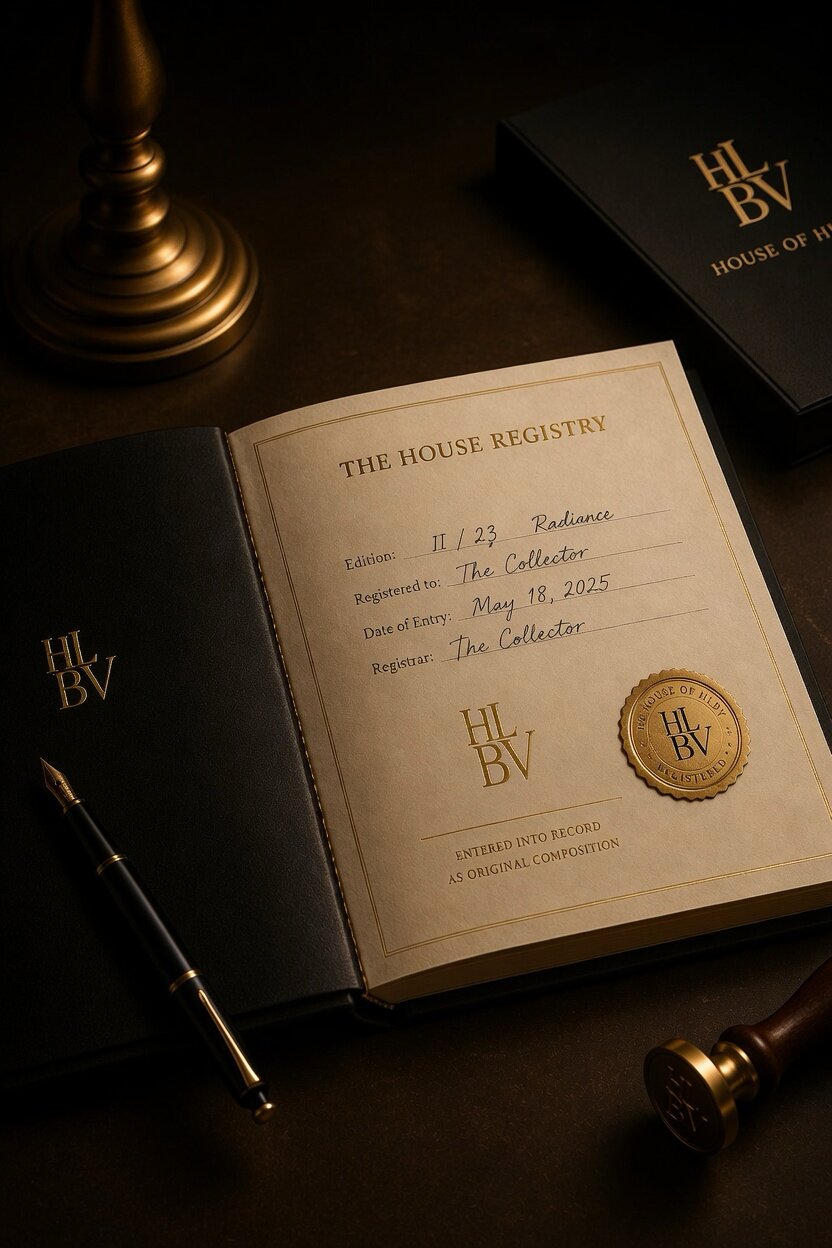 HL
BV
HOUSE OF
THE HOUSE REGISTRY
Edition: II / 23 Radiance
Registered to: The Collector
Date of Entry: May 18, 2025
Registrar: The Collector
HL
BV
HL
BV
THE HOUSE OF HLDY
HL
BV
REGISTERED
ENTERED INTO RECORD
AS ORIGINAL COMPOSITION